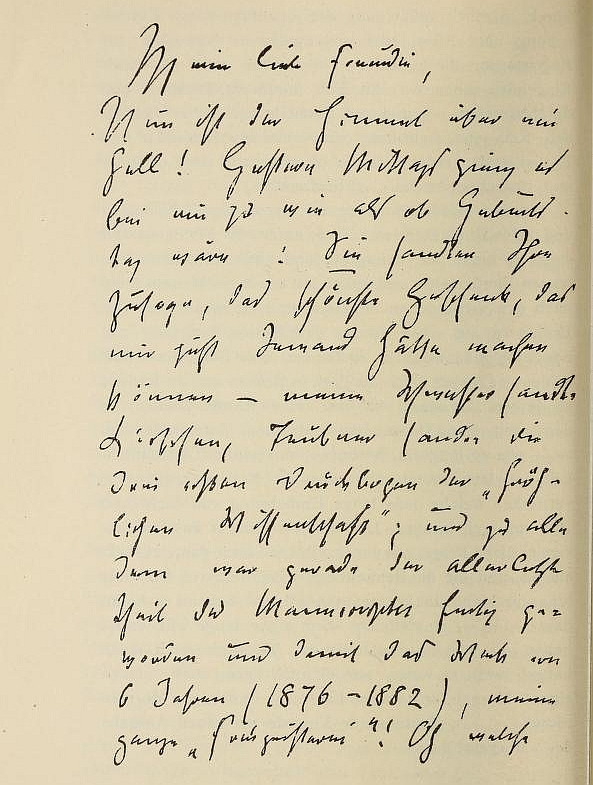 Meine liebe Freundin,
Nun ist der Himmel über mir
hell! Gestern Mittag gieng es
bei mir zu wie als ob Geburts-
tag wäre: Sie sandten Ihre
Zusage, das schönste Geschenk, das
mir jetzt Jemand hätte machen
können — meine Schwester sandte
Kirschen, Teubner sandte die
drei ersten Druckbogen der „fröh-
lichen Wissenschaft“; und zu alle
dem war gerade der allerletzte
Theil des Manuscriptes fertig ge=
worden und damit das Werk von
6 Jahren (1876–1882), meine
ganze „Freigeisterei“! Oh welche